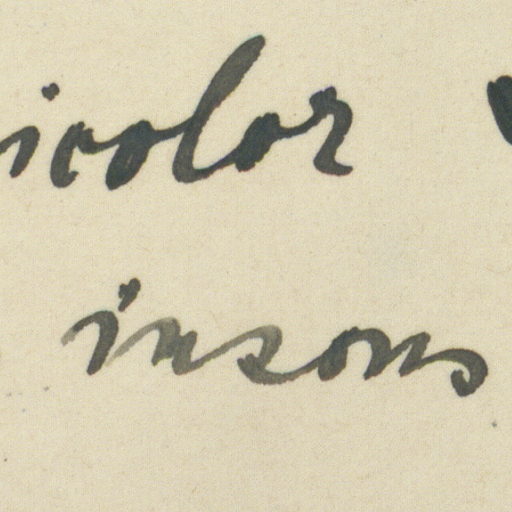 icolor
insons